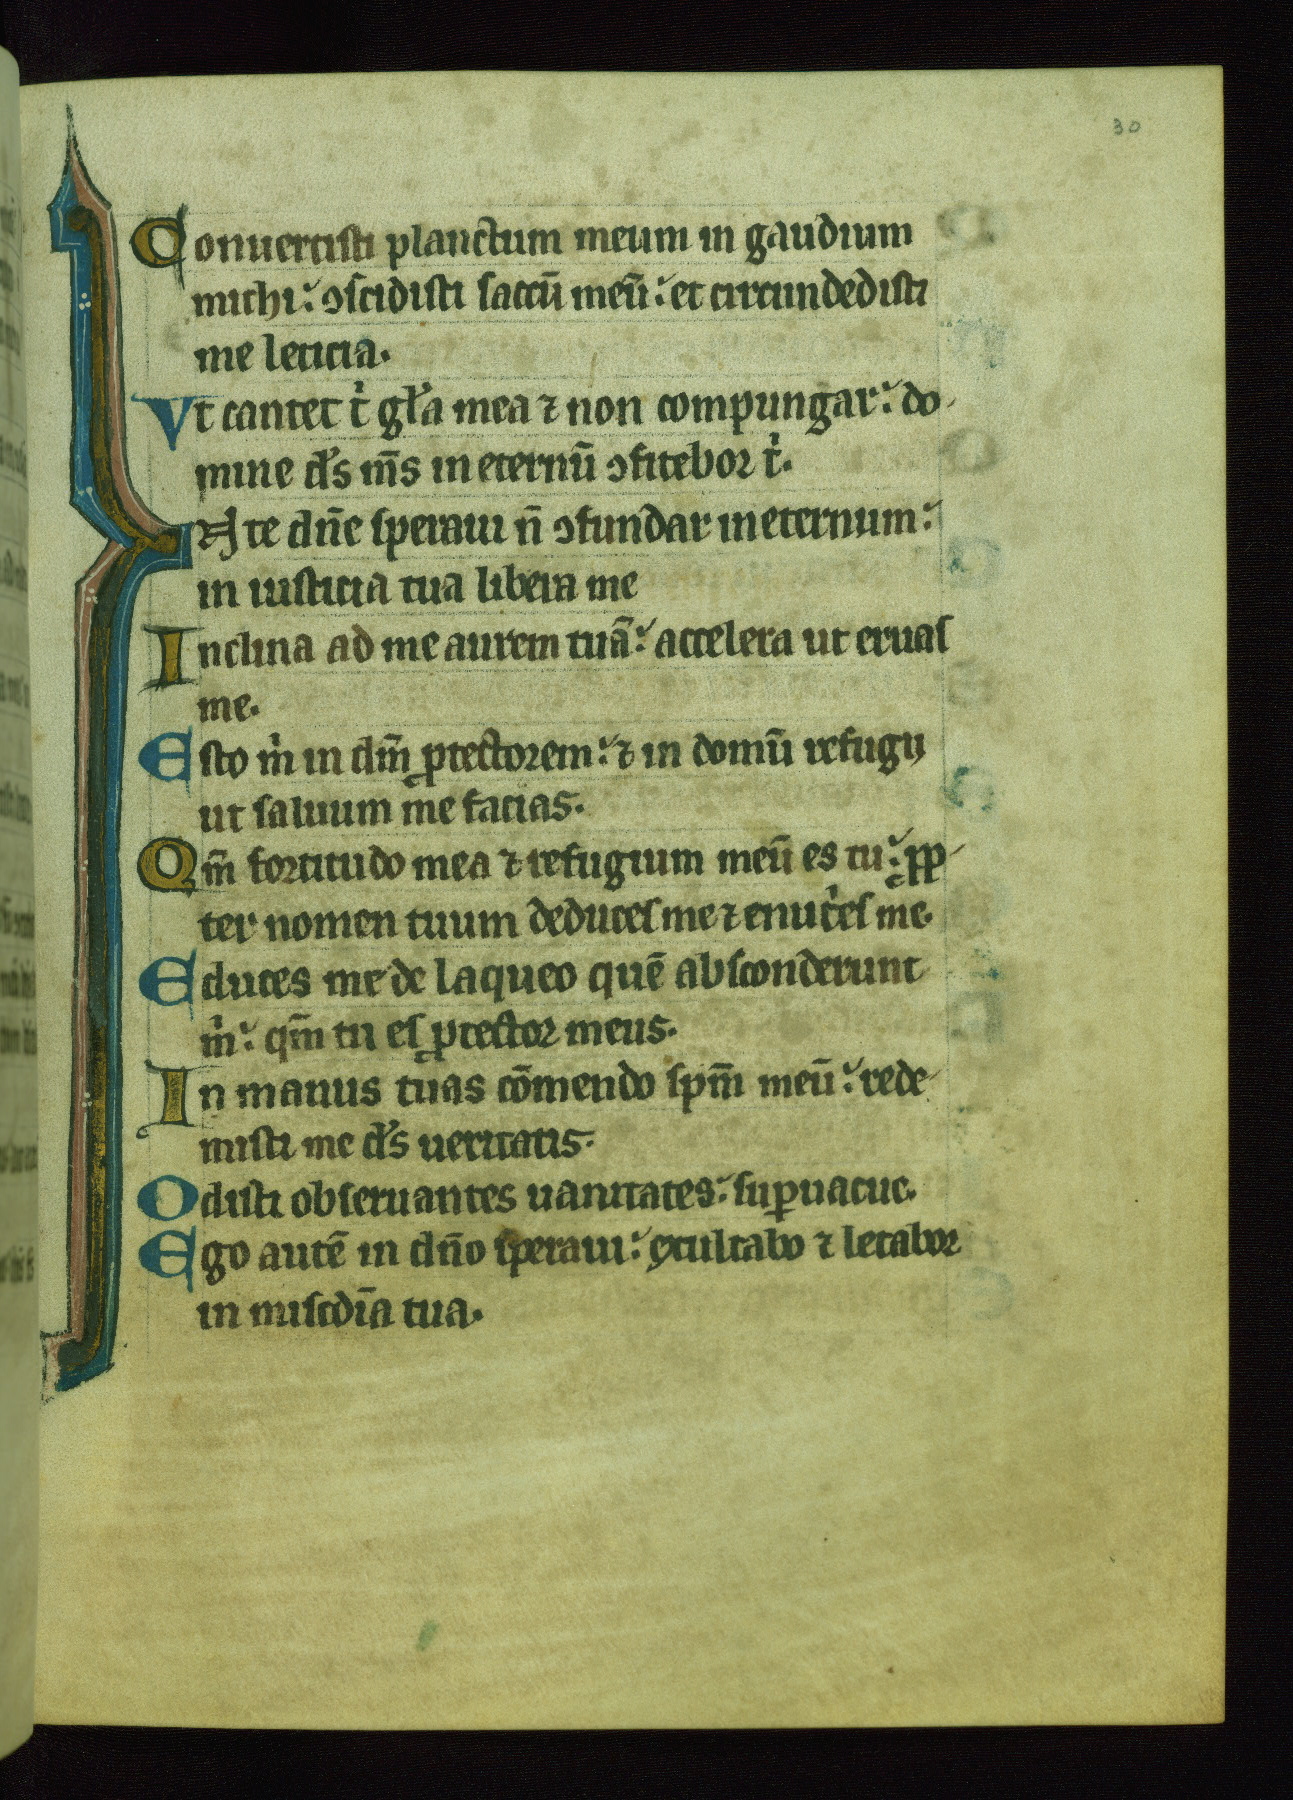 30
Conuertisti planctum meum in gaudium
michi: ꝯscidisti saccū meū: et circundedisti
me leticia.
Vt cantet t̾ gl̾a mea ⁊ non compungar: do-
mine d̾s m̄s in eternū ꝯfitebor t̾.
N te dn̄e speraui n̄ ꝯfundar in eternum:
in iusticia tua libera me
Inclina ad me aurem tuā: accelera ut eruas
me.
Esto m̾ in dm̄ ꝓtectorem: ⁊ in domū refugij
ut saluum me facias.
Qm̄ fortitudo mea ⁊ refugium meū es tu: ꝓp-
ter nomen tuum deduces me ⁊ enut̾es me.
Educes me de laqueo quē absconderunt
m̾: qm̄ tu es ꝓtector meus.
In manus tuas cōmendo spm̄ meū: rede-
misti me d̾s ueritatis.
Odisti obseruantes uanitates: suꝑuacue.
Ego autē in dn̄o speraui: exultabo ⁊ letabor
in miscd̄ia tua.